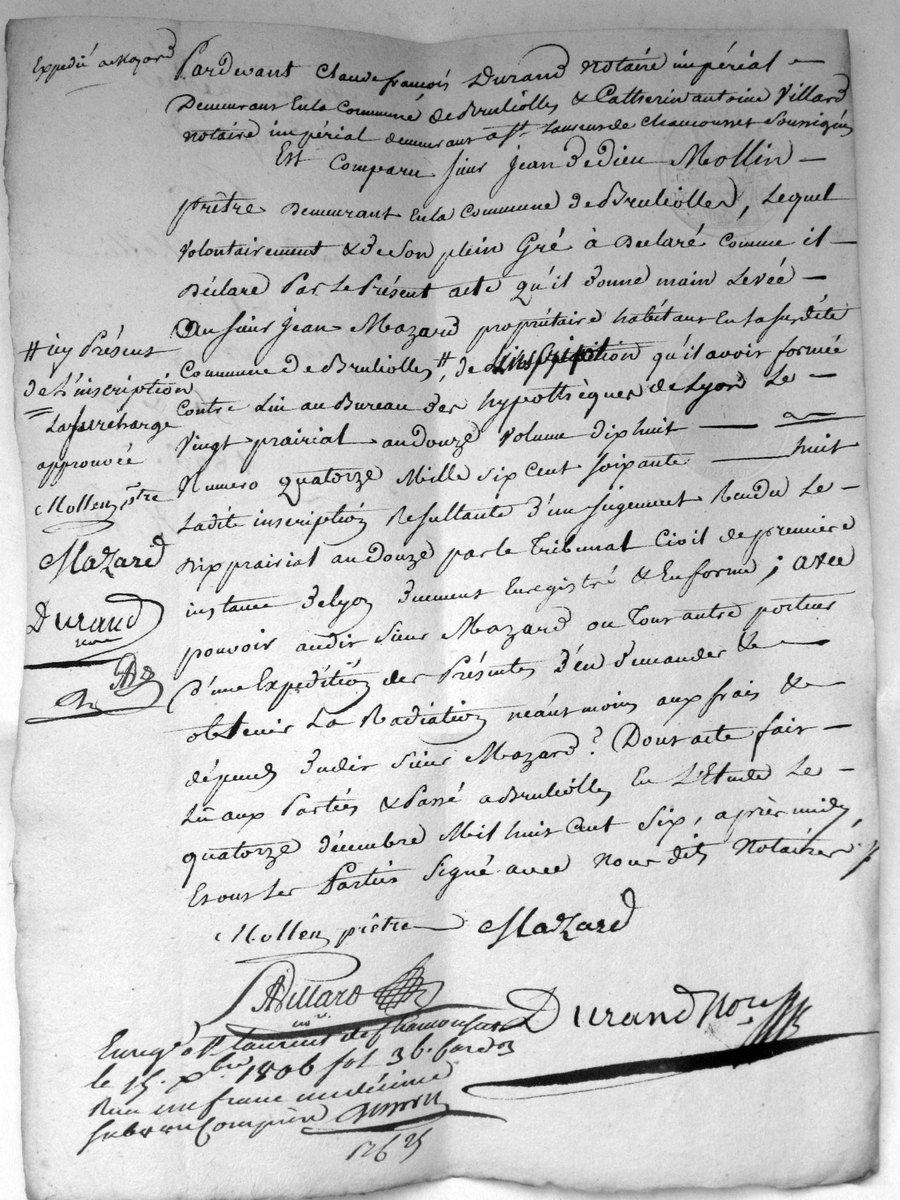 Expedié a Mazard
Pardevant Claude françois Durand notaire impérial
Demeurant En la Commune de Bruliolles & Catherin antoine Villard
notaire impérial demeurant a St. Laurent de Chamousset Soussignés
Est Comparu sieur Jean de dieu Mollin
prêtre Demeurant En la Commune de Brulliolles, Lequel
volontairement & de Son plein Gré à Déclaré Comme il
Déclare Par Le Présent acte qu'il donne main Levée
Au sieur Jean Mazard propriétaire habitant En la susdite
Commune de Brulliolles #, de L'inscription qu'il avoit formée
Contre Lui au Bureau des hypothèques de Lyon Le
Vingt prairial an douze Volume dix huit
Numero quatorze Mille six Cent soixante huit
Ladite inscription Resultante d'un Jugement Rendu Le
dix prairial an douze par le Tribunal Civil de première
instance de Lyon duement Enregistré & En forme ; avec
pouvoir audit sieur Mazard ou Tout autre porteur
d'une Expédition des Présentes d'en demander &
obtenir La Radiation néantmoins aux frais &
dépends dudit sieur Mazard? Dont acte fait
Lu aux Parties & Passé a Brulliolles En L'Etude Le
quatorze décembre Mil huit Cent Six, après midy,
Et ont Les Parties Signé avec Nous dits Notaires
# icy Présent
de L'inscription
La surcharge
approuvée
Mollen ptre
Mazard
Durand
nore
Mollen prêtre Mazard
Villard
nore
Durand Nore
Enregé a St. Laurent de Chamousset
le 15 Xbre 1806 fol 36
Reçu un franc un décime
subvon Comprise